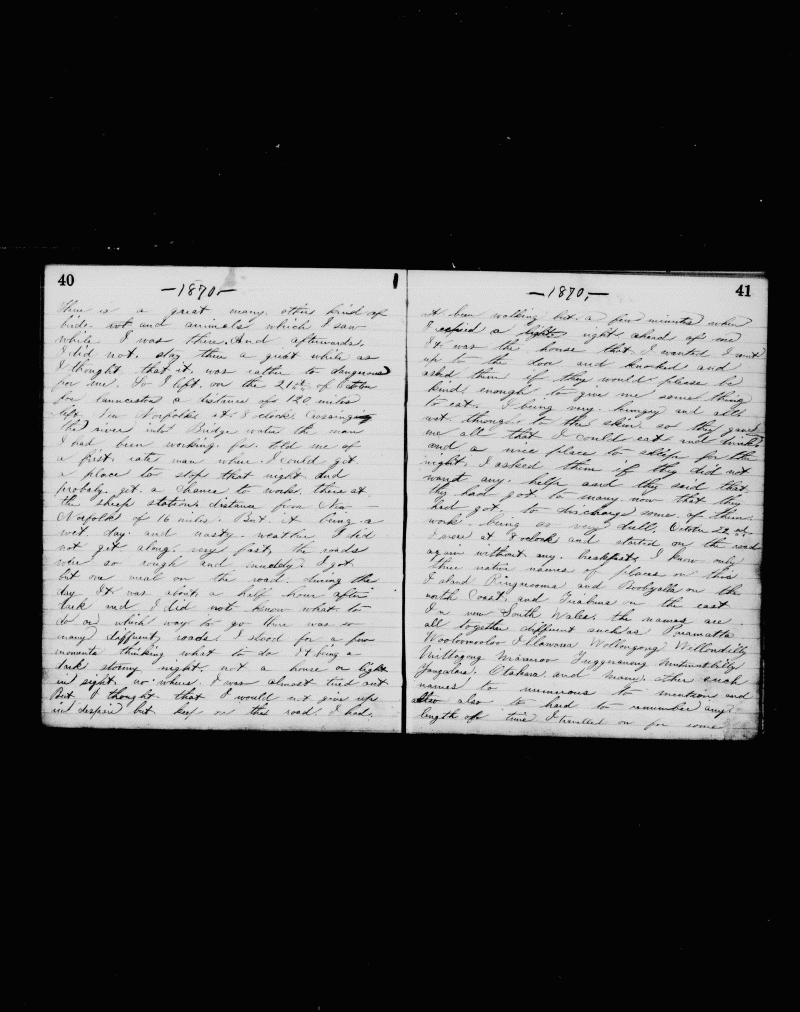 40
—1870,—
There is a great many other kind of
birds. and animals which I saw
while I was there. And afterwards.
I did not. stay there a great while as
I thought that it. was rather to dangerous
for me. So I left. on the 21st of October
for Launceston a distance of 120 miles
left. New Norfolk at 8 oclock Crossing
the river into Bridge water the man
I had been working. for. told me of
a first. rate man where I could get
a place to stop that night and
probaly. get. a chance to work. there at
the sheep station distance from New
Norfolks of 16 miles. But. it being a
wet. day. and nasty. weather. I did
not get along. very fast, the roads
were so rough and muddy. I got.
but one meal on the road. during the
day It was about a half hour after
dark and I did note know what to
do or which way to go there was so
many diffrent, roads. I stood for a few
moments thinking what to do It being a
dark stormy night. not a house or light
in sight. no where. I was almost tired out
But I thought that I would not give up
in despair but keep on the road. I had.
41
—1870,—
not been walking but. a few minutes when
I espied a light right ahead of me
It was the house that. I wanted I went
up to the door and knocked and
asked them if they would please be
kind enough to give me some thing
to eat. I being very. hungry and all
wet. through to the skin. so they gave
me all that I could eat and drink
and a nice place to sleep for the
night, I asked them if they did not
want any. help and they said that
they had got to many now that they
had got to discharge some. of them.
work. being so very dull. October 22nd
I arose at 8 oclock and started on the road
again without any. breakfast. I know only
three native names of places on this
Island Ringarooma and Boobyalla on the
north Coast. and Triabuna on the east
In new South Wales. the names are
all together diffrent such as Paramatta
Wooloomooloo Illawara Wollongong Wollondilly
names to numerous to mention and
also to hard to remember any
length of time I travelled on for some